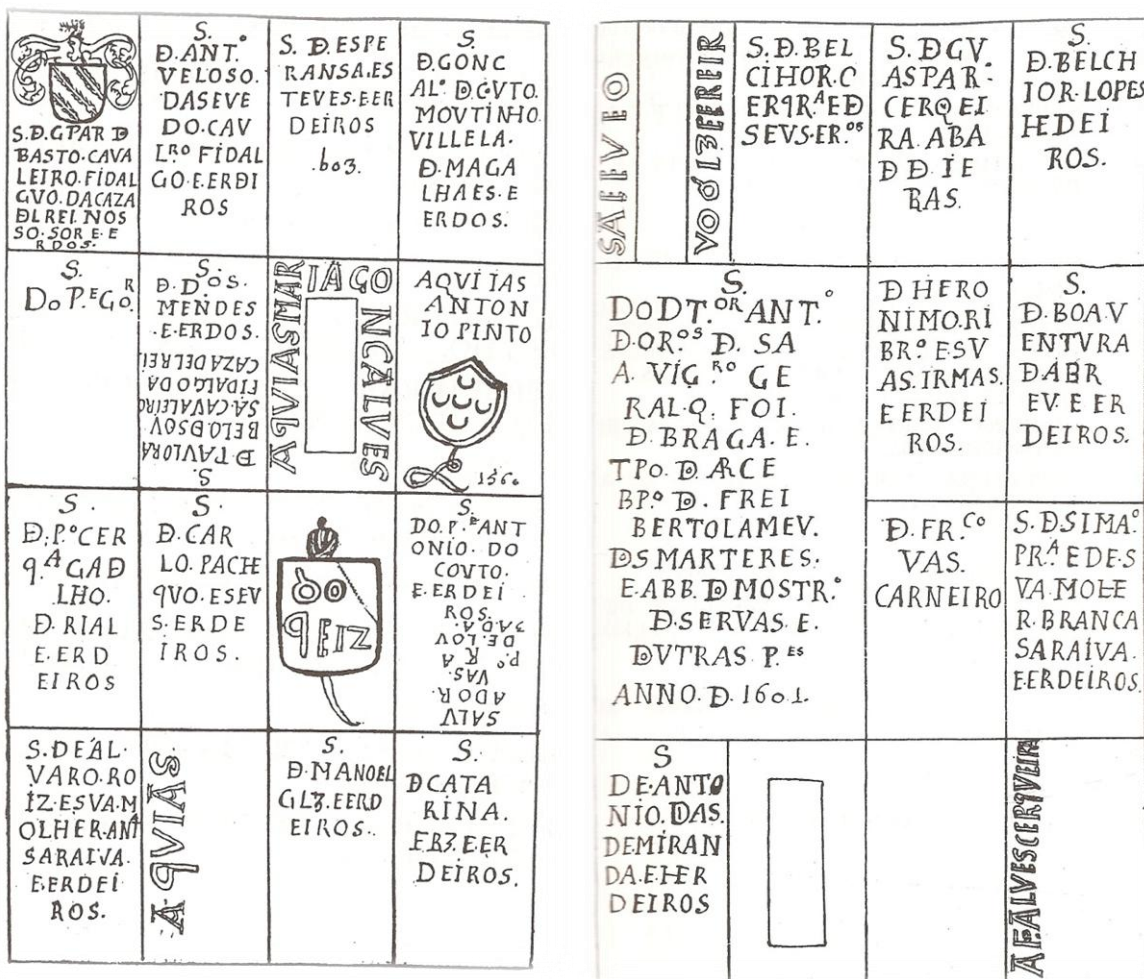 S. Đ. GPAR Đ
BASTO. CAVA
LEIRO. FIDAL
GVO. DACAZA
ĐL REI. NOS
SO. SOR E. E
RDOS.
S.
Đ. ANT.º
VELOSO.
DASEVE
DO. CAV
L.RO FIDAL
GO. E. ERĐI
ROS
S. Đ. ESPE
RANSA. ES
TEVES. E ER
DEIROS
.603.
S.
Đ. GONC
AL.º Đ. CVTO.
MOVTINHO.
VILLELA.
Đ. MAGA
LHAES. E
ERDOS.
S.
Do P.E G.R
S.
Đ. D.OS.
MENDES
.E. ERDOS.
S.
Đ TAVLORA
BELO. ĐSOV
SA. CAVALEIRO
FIDALGO DA
CAZA DEL REI
AQVIASMAR
IAGO
NCALVES
AQVI IAS
ANTON
IO PINTO
1560
S.
Đ. P.º CER
q.A GAĐ
LHO.
Đ. RIAL
E. ERD
EIROS
S.
Đ. CAR
LO. PACHE
qVO. ESEV
S. ERDE
IROS.
DO
qEIZ
S.
DO. P.E ANT
ONIO. DO
COVTO.
E. ERDEI
ROS.
SALV
ADOR.
VAS.
P.º
DE LOV
S. DE ÁL.
VARO. RO
IZ. ESVA. M
OLHER. ANT
SARAIVA.
E. ERDEI
ROS.
A qVIAS
S.
Đ. MANOEL
GLZ. E ERD
EIROS.
S.
Đ CATA
RINA.
FRZ. E. ER
DEIROS.
VO Đ 13 FEREIR
S. Đ. BEL
CIHOR. C
ERqR.A E Đ
SEVS. ER.OS
S. Đ GV.
ASPAR.
CERQEI
RA. ABA
D Đ. IE
RAS.
S.
Đ. BELCH
IOR. LOPES
HEDEI
ROS.
S.
DO DT.OR ANT.º
D. OR.OS Đ. SA
A. VIG.RO GE
RAL. Q. FOI.
Đ. BRAGA. E.
TPO. Đ ARCE
BP.º Đ. FREI
BERTOLAMEV.
ĐS MARTERES.
E ABB. Đ MOSTR.º
Đ. SERVAS. E.
ĐVTRAS P.ES
ANNO. Đ. 1601.
Đ HERO
NIMO. RI
BR.º ESV
AS. IRMAS.
E ERDEI
ROS.
S.
Đ. BOAV
ENTVRA
ĐABR
EV. E ER
DEIROS.
Đ. FR.CO
VAS.
CARNEIRO
S. ĐSIMAº
PR.A E DE S
VA. MOLE
R. BRANCA
SARAIVA.
E. ERDEIROS.
S
DE. ANTO
NIO. DAS.
DEMIRAN
DA. E HER
DEIROS
A F. ALVES CERqVEIRA